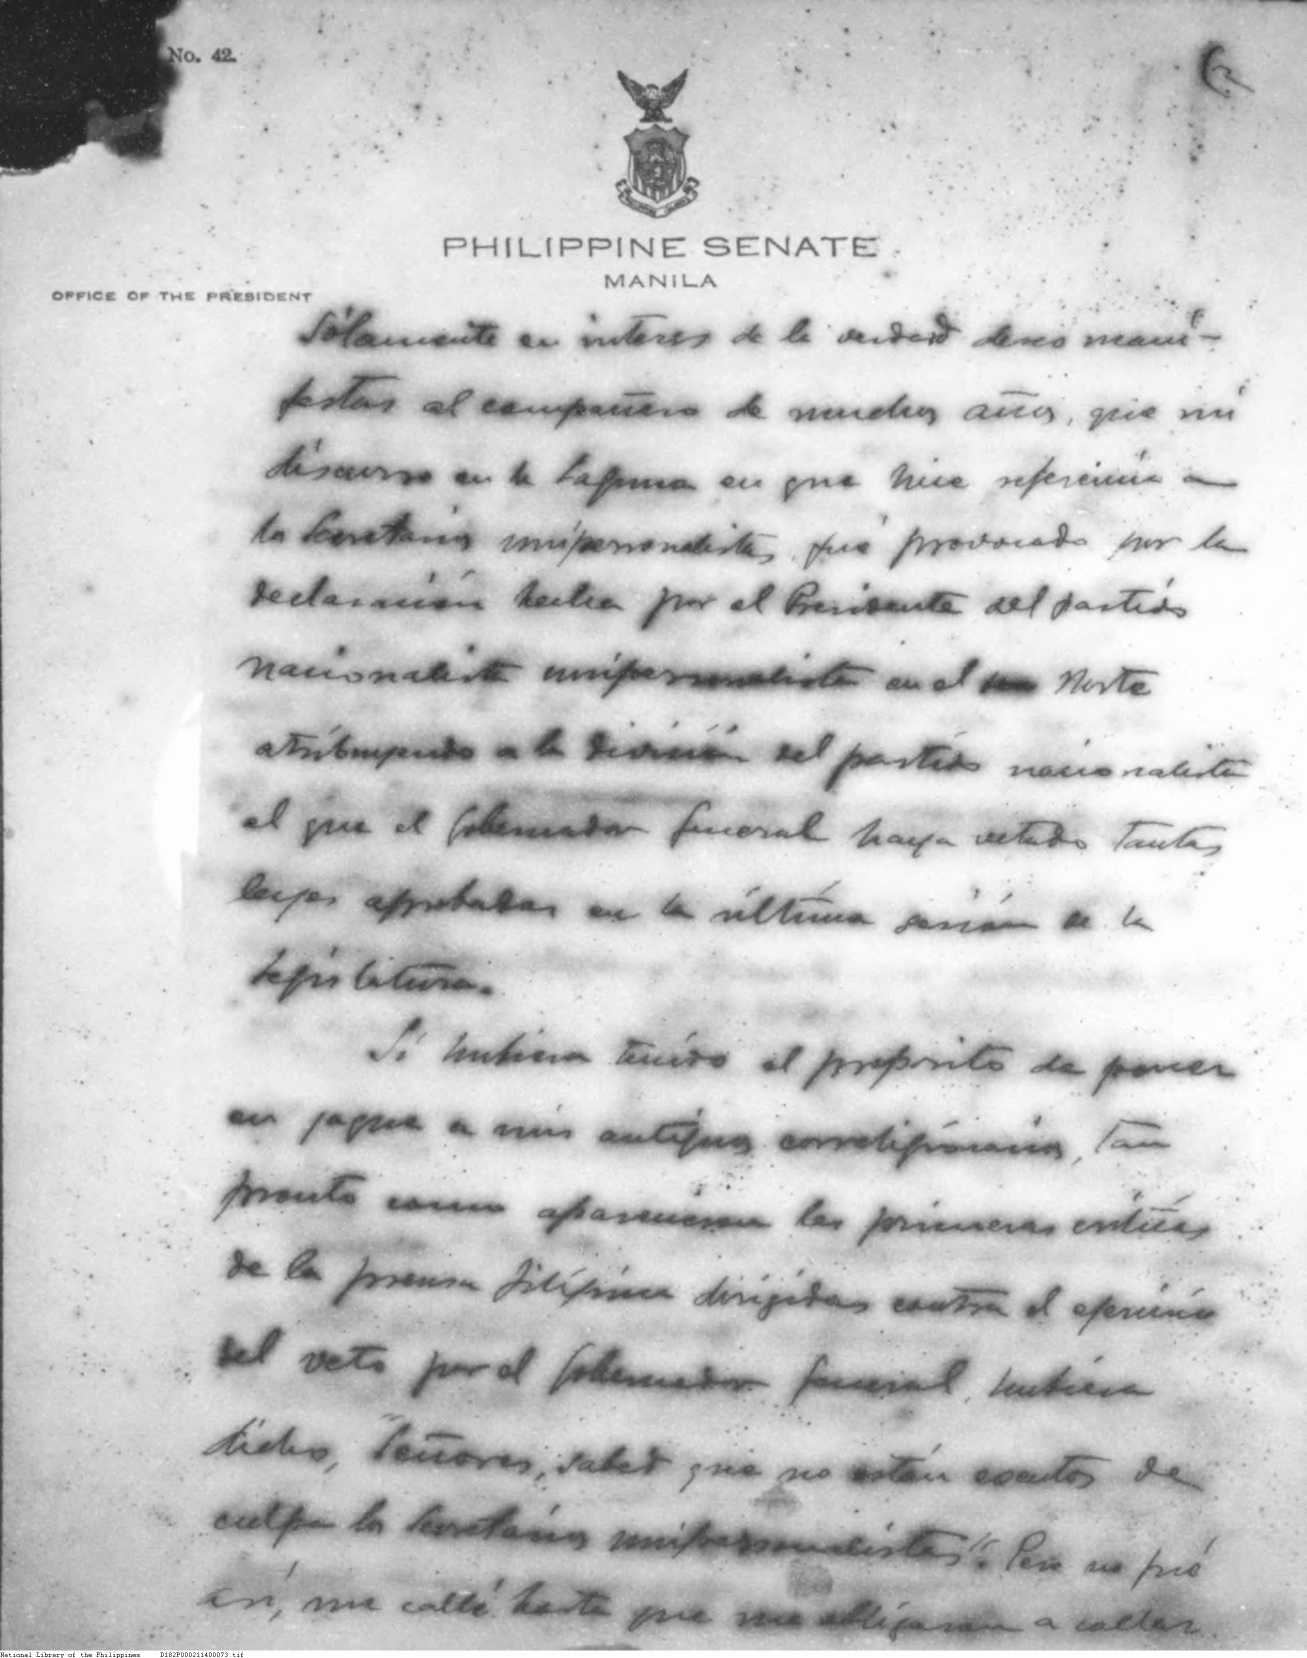 No. 42.
2
PHILIPPINE SENATE
MANILA
OFFICE OF THE PRESIDENT
Sólamente en interes de la verdad deseo mani-
festar al compañero de muchos años, que mi
discurso en la Laguna en que hice referencia a
los Secretarios unipersonalistas, fué provocado por la
declaración hecha por el Presidente del partido
nacionalista unipersonalista en el Norte
atribuyendo a la división del partido nacionalista
el que el Gobernador General haya vetado tantas
leyes aprobadas en la última sesión de la
Legislatura.
Si hubiera tenido el propósito de poner
en jaque a mis antiguos correligionarios, tan
pronto como aparecieron las primeras críticas
de la prensa filipina dirigidas contra el ejercicio
del veto por el Gobernador General, hubiera
dicho, "Señores, sabed que no están exentos de
culpa los Secretarios unipersonalistas". Pero no fué
así, me callé hasta que me obligaron a
National Library of the Philippines D182P000211400073.tif